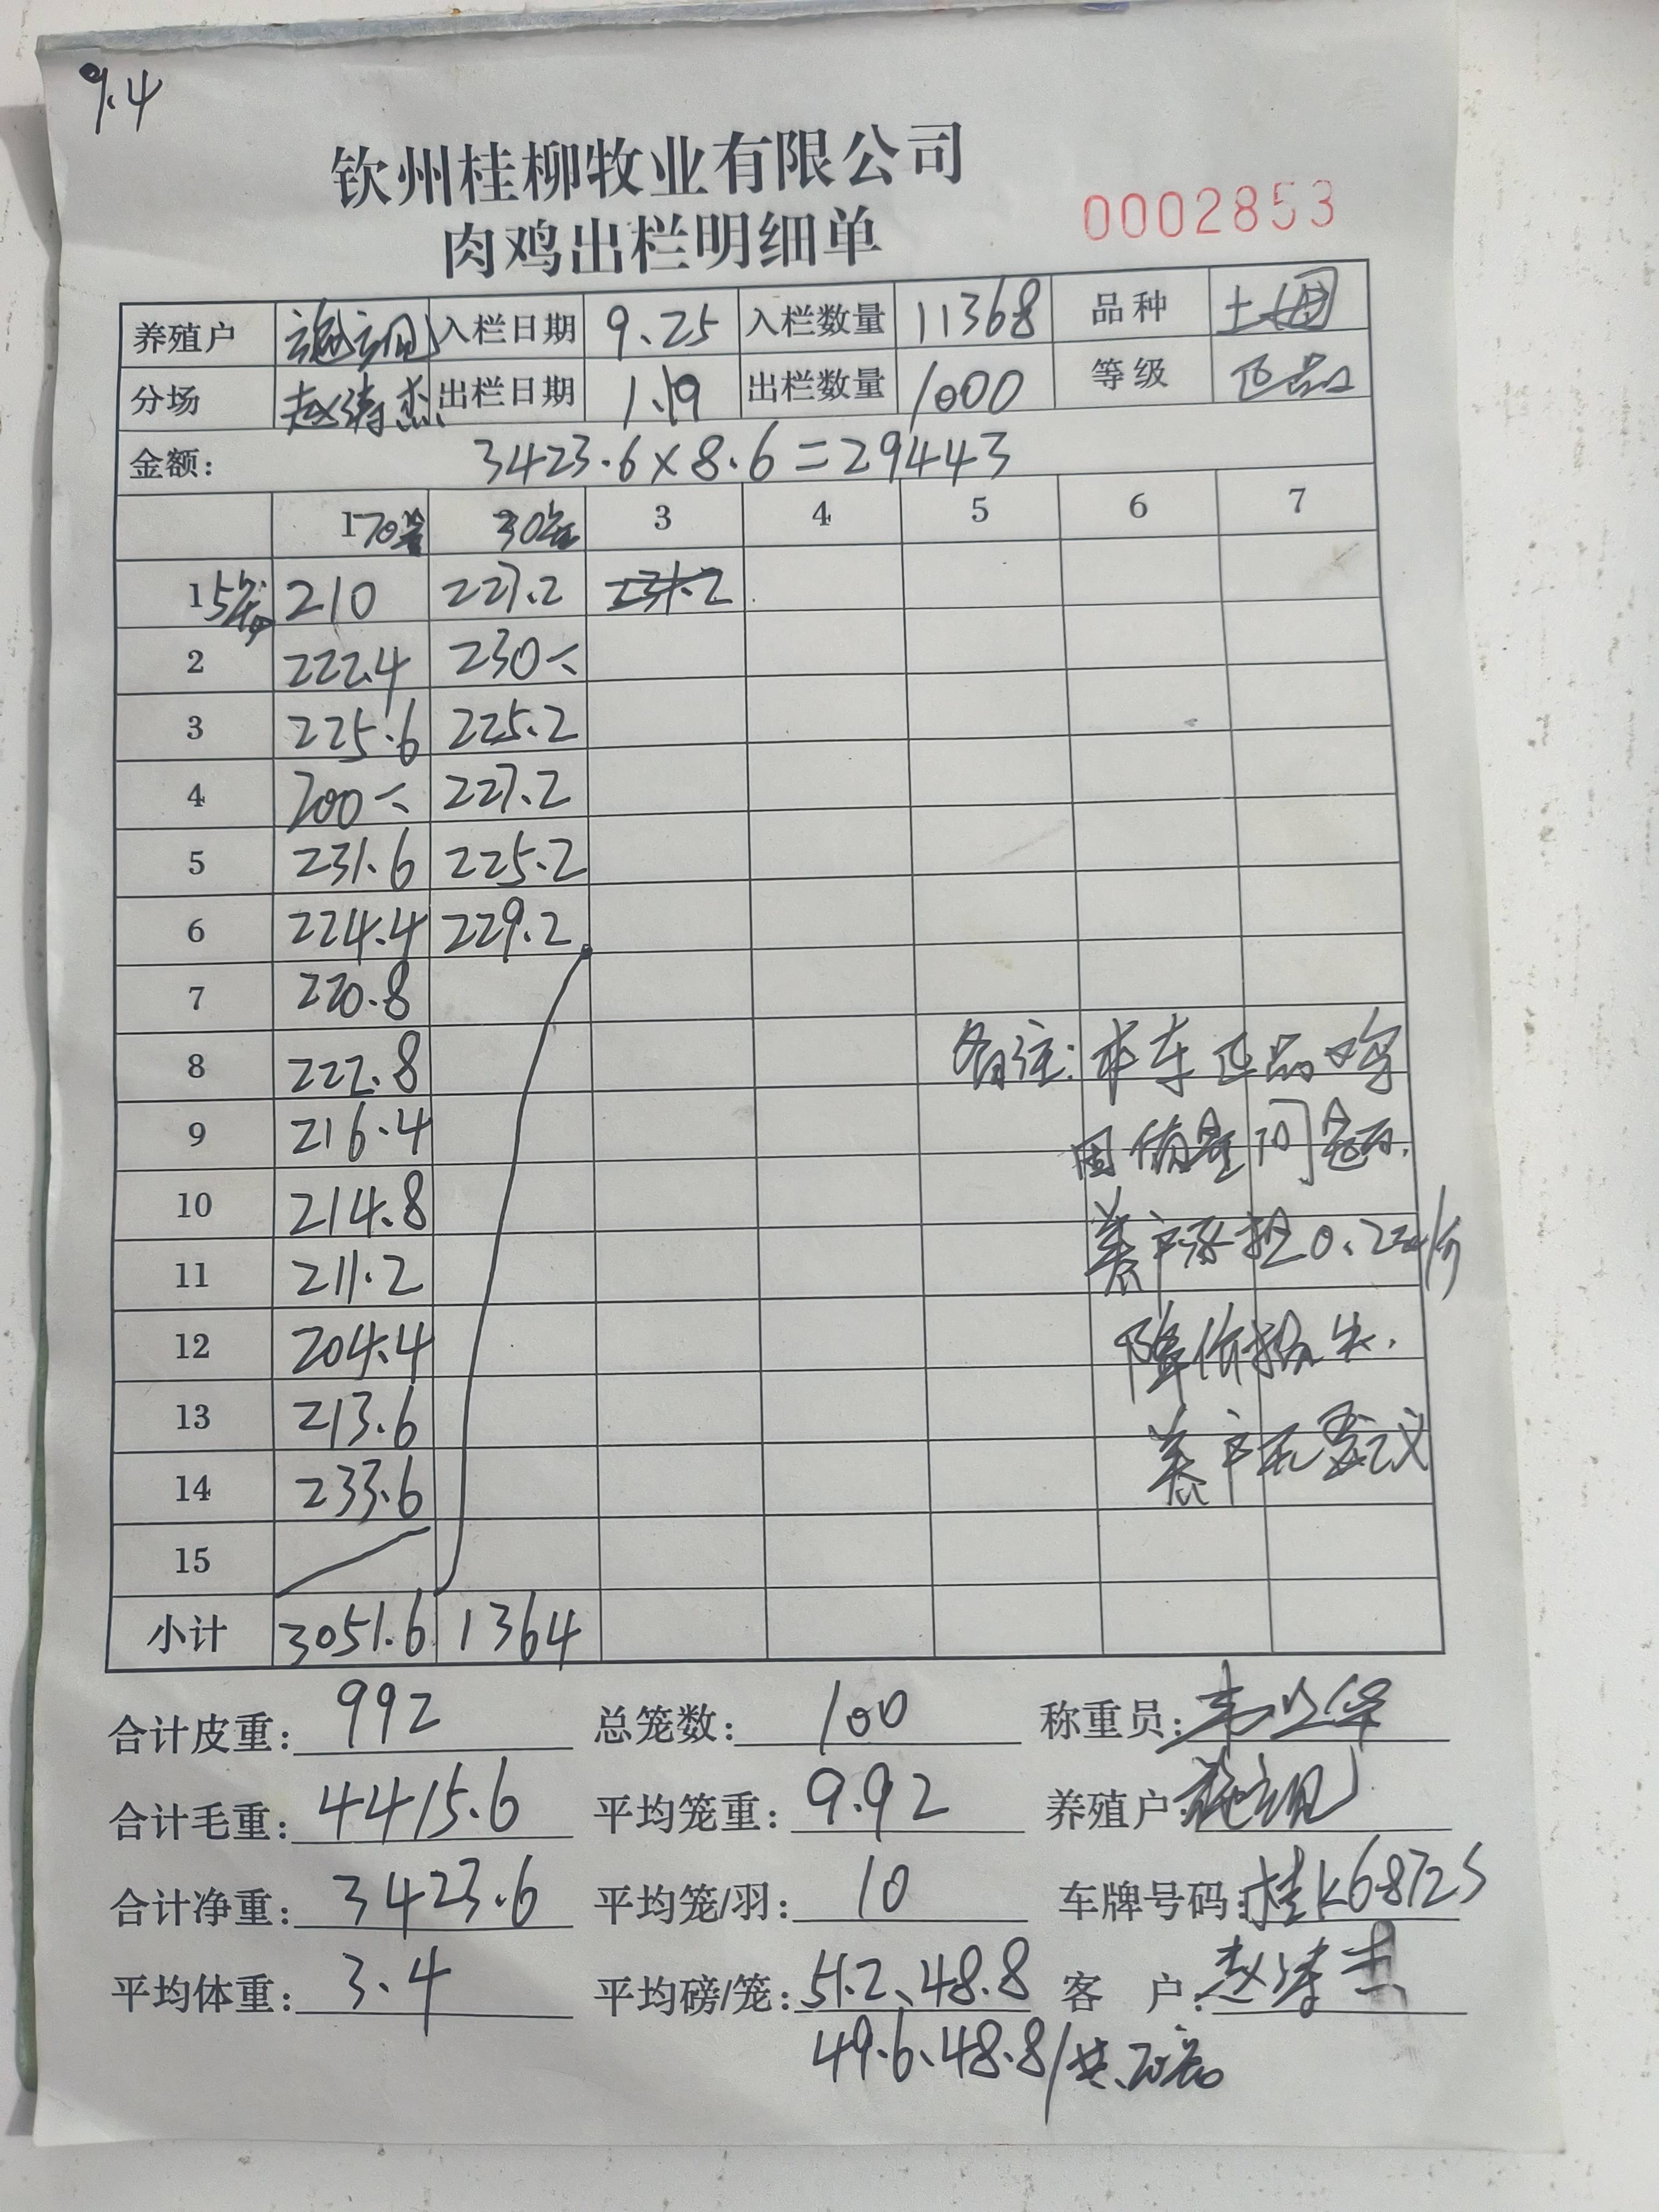 9.4
钦州桂柳牧业有限公司
肉鸡出栏明细单
0002853
养殖户 入栏日期 9.25 入栏数量 11368 品种 土
分场 赵涛杰 出栏日期 1.19 出栏数量 1000 等级 正品
金额: 3423.6×8.6=29443
170羽 30笼 3 4 5 6 7
1 5笼 210 227.2 231.2
2 222.4 230
3 225.6 225.2
4 200 227.2
5 231.6 225.2
6 224.4 229.2
7 220.8
8 222.8
9 216.4
10 214.8
11 211.2
12 204.4
13 213.6
14 233.6
15
小计 3051.6 1364
备注:本车正品鸡
因质量问题,
养户承担0.2元/斤
降价损失,
养户无异议
合计皮重: 992 总笼数: 100 称重员:
合计毛重: 4415.6 平均笼重: 9.92 养殖户:
合计净重: 3423.6 平均笼/羽: 10 车牌号码: 桂K68725
平均体重: 3.4 平均磅/笼: 51.2、48.8 客 户: 赵涛杰
49.6、48.8/